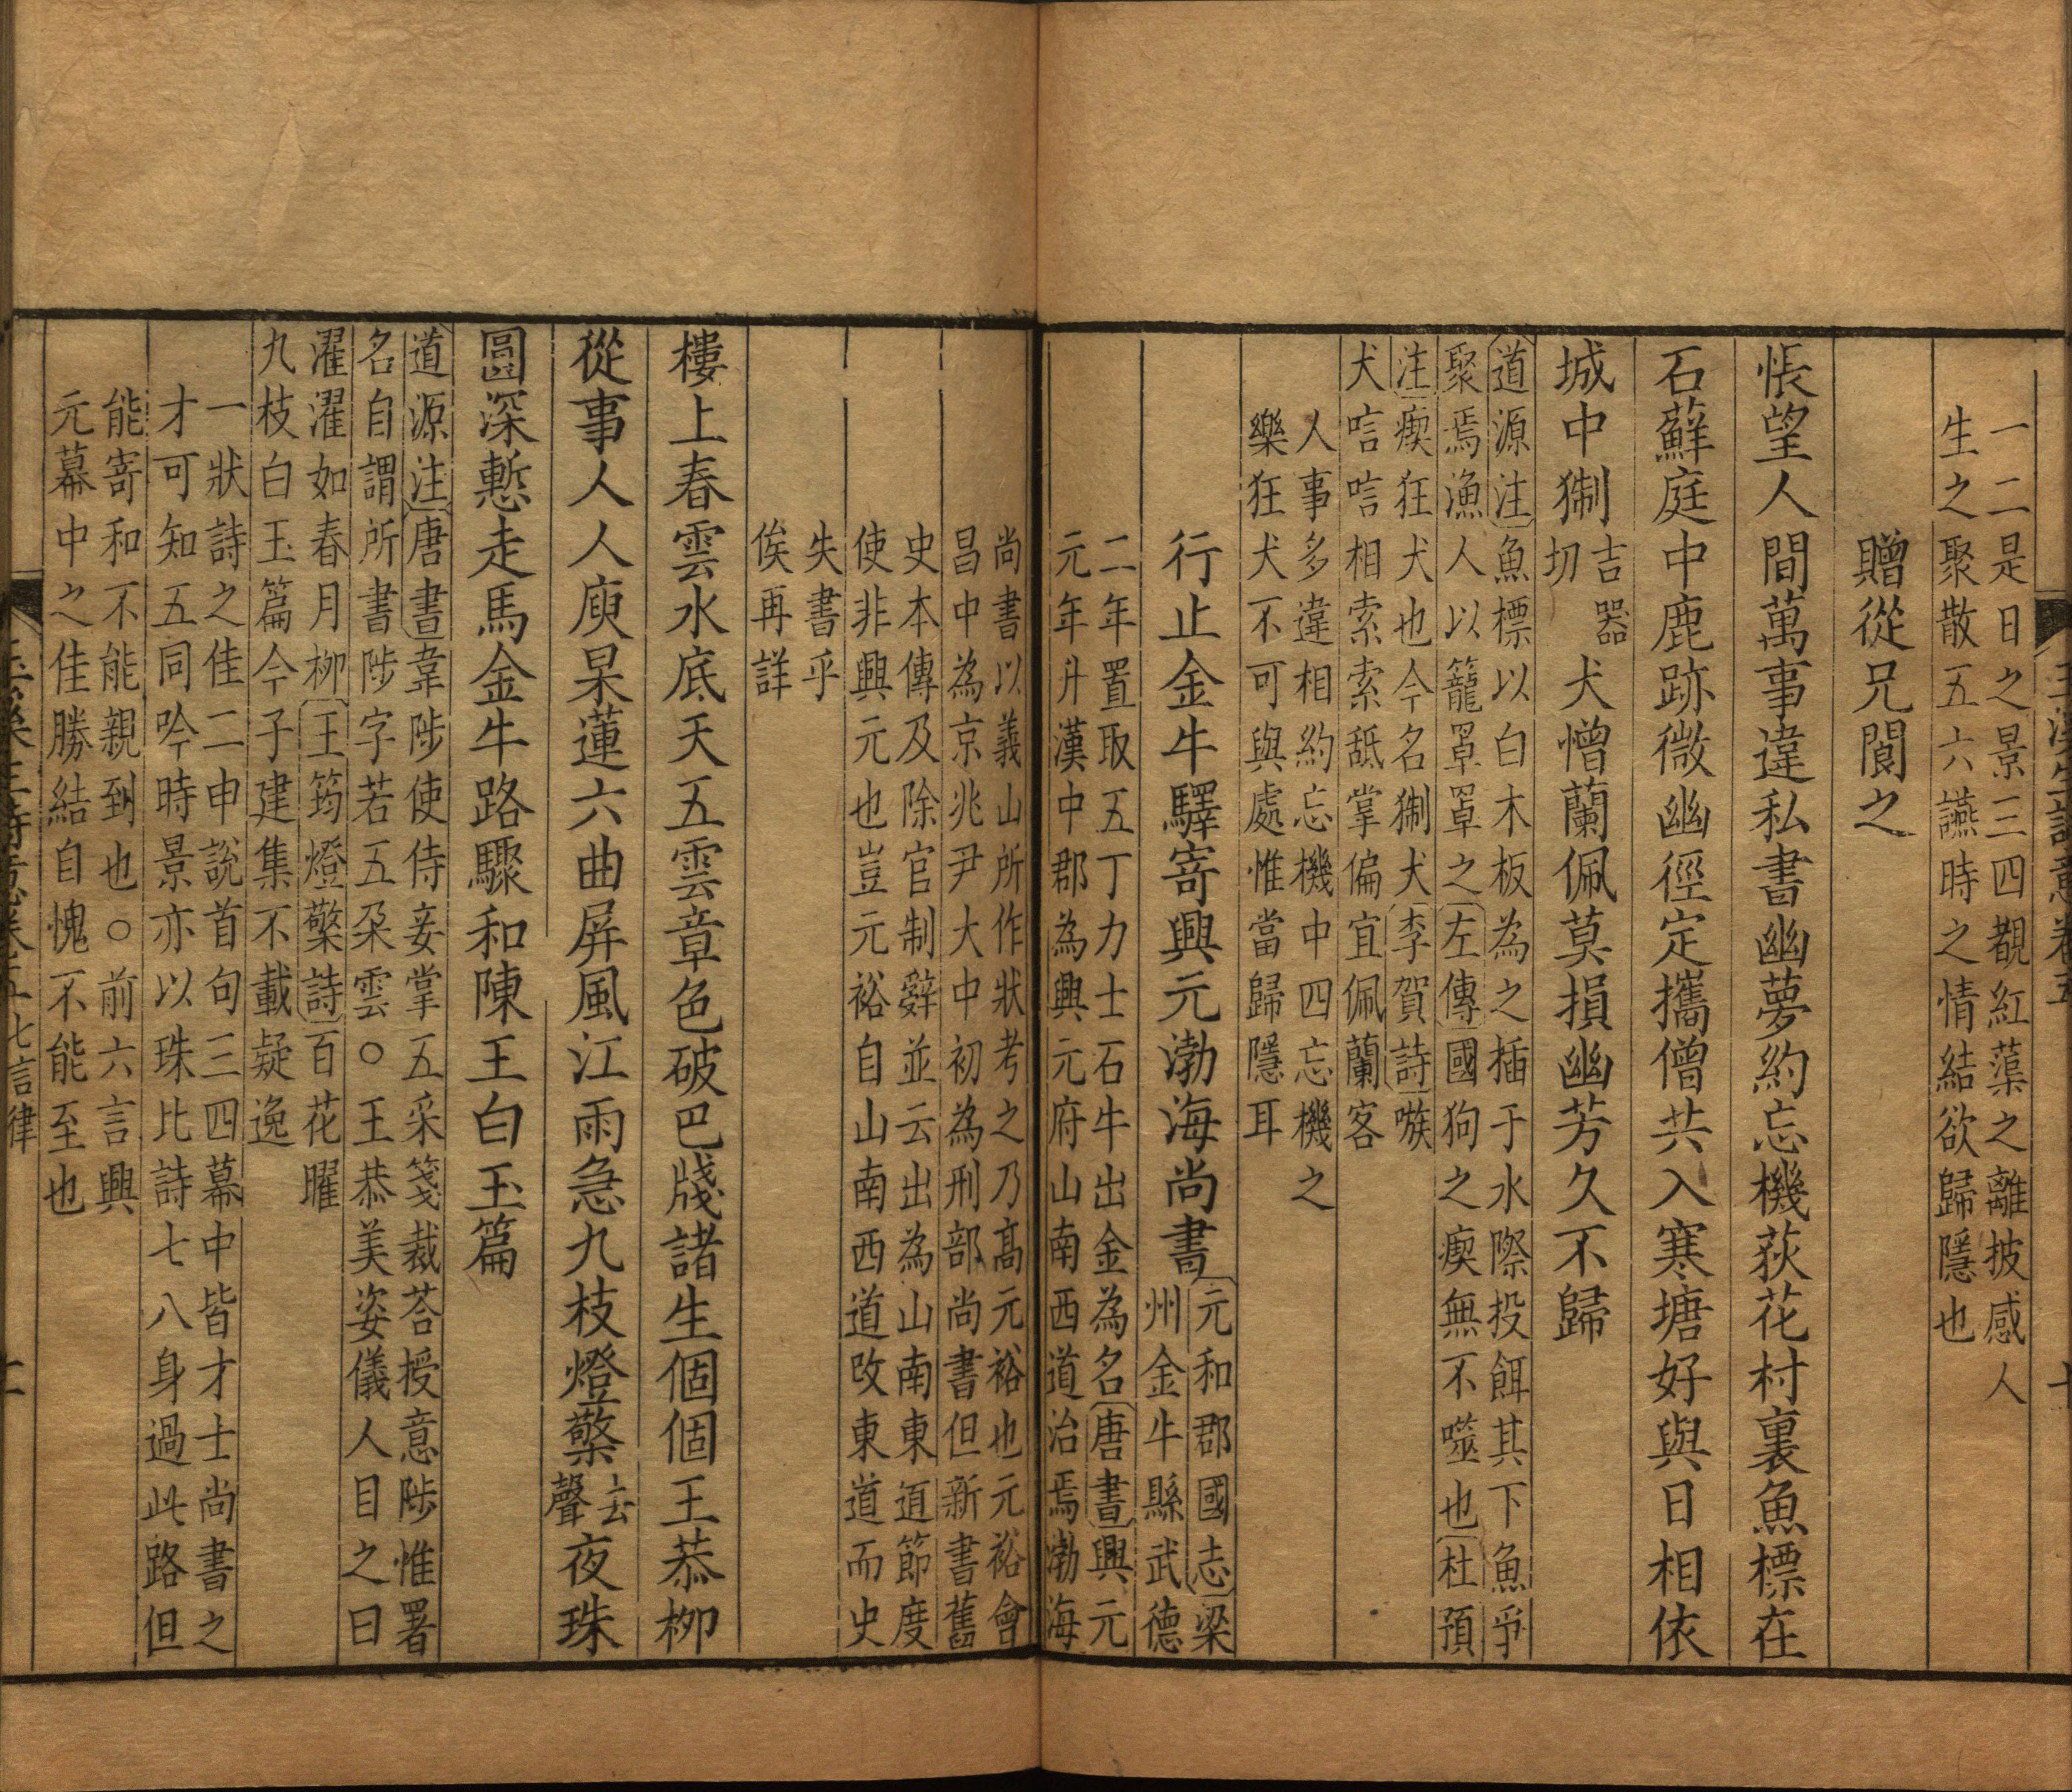 一二是日之景三四覩紅蕖之離披感人
生之聚散五六讌時之情結欲歸隱也
贈從兄閬之
悵望人間萬事違私書幽夢約忘機荻花村裏魚標在
石蘚庭中鹿跡微幽徑定攜僧共入寒塘好與日相依
城中猘吉器切犬憎蘭佩莫損幽芳久不歸
道源注魚標以白木板為之插于水際投餌其下魚爭
聚焉漁人以籠罩罩之左傳國狗之瘈無不噬也杜預
注瘈狂犬也今名猘犬李賀詩嗾
犬唁唁相索索舐掌偏宜佩蘭客
人事多違相約忘機中四忘機之
樂狂犬不可與處惟當歸隱耳
行止金牛驛寄興元渤海尚書
元和郡國志梁
州金牛縣武德
二年置取五丁力士石牛出金為名唐書興元
元年升漢中郡為興元府山南西道治焉渤海
尚書以義山所作狀考之乃高元裕也元裕會
昌中為京兆尹大中初為刑部尚書但新書舊
史本傳及除官制辭並云出為山南東道節度
使非興元也豈元裕自山南西道改東道而史
失書乎
俟再詳
樓上春雲水底天五雲章色破巴牋諸生個個王恭柳
從事人人庾杲蓮六曲屏風江雨急九枝燈檠去聲夜珠
圓深慙走馬金牛路驟和陳王白玉篇
道源注唐書韋陟使侍妾掌五采箋裁荅授意陟惟署
名自謂所書陟字若五朶雲○王恭美姿儀人目之曰
濯濯如春月柳王筠燈檠詩百花曜
九枝白玉篇今子建集不載疑逸
一狀詩之佳二申說首句三四幕中皆才士尚書之
才可知五同吟時景亦以珠比詩七八身過此路但
能寄和不能親到也○前六言興
元幕中之佳勝結自愧不能至也
七言律